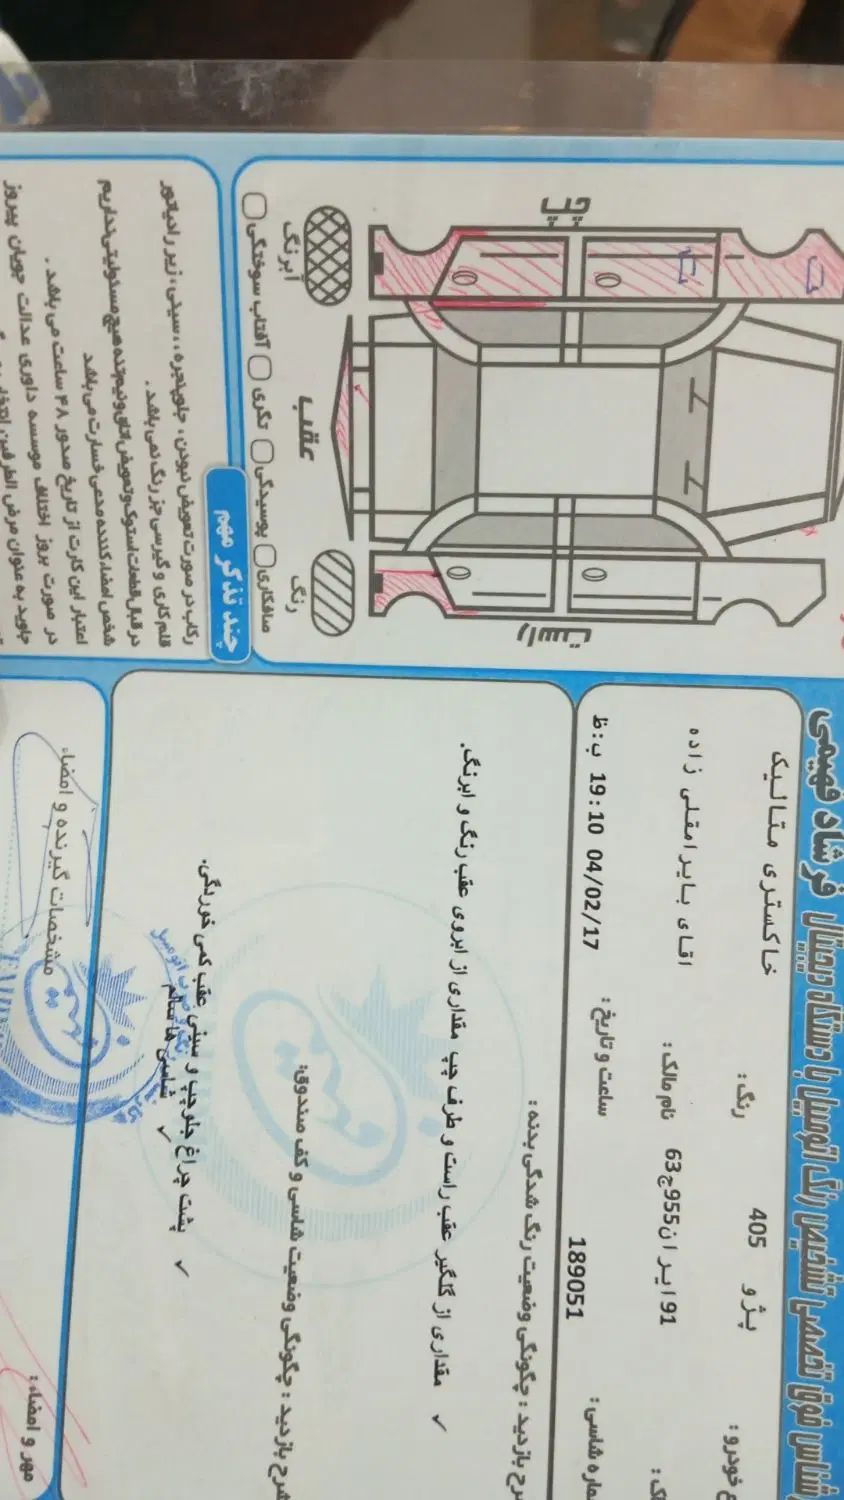 شناس فوق تخصصی تشخیص رنگ اتومبیل با دستگاه دیجیتال فرشاد فهیمی
خودرو : پژو 405 رنگ : خاکستری متالیک
ک : 91ایران955ج63 نام مالک : اقای بایرامقلی زاده
ماره شاسی : 189051 ساعت و تاریخ : 04/02/17 19:10 ب:ظ
رح بازدید : چگونگی وضعیت رنگ شدگی بدنه :
✓ مقداری از گلگیر عقب راست و طرف چپ مقداری از ابروی عقب رنگ و ابرنگ.
شرح بازدید : چگونگی وضعیت شاسی و کف صندوق:
✓ پشت چراغ جلو چپ و سینی عقب کمی خوردگی.
✓ شاسی ها سالم
مهر و امضاء :
مشخصات گیرنده و امضاء
چپ
راست
عقب
آبرنگ
رنگ
صافکاری
پوسیدگی
تگری
آفتاب سوختگی
چند تذکر مهم
رکاب در صورت تعویض نبودن ، جلوپنجره ، سینی ، زیر رادیاتور
قلم کاری و گیرسی جز رنگ نمی باشد .
در قبال قطعات استوک و تعویض اتاق و نیم تنه هیچ مسئولیتی نداریم
شخص امضاء کننده مدعی خسارت می باشد
اعتبار این کارت از تاریخ صدور ۴۸ ساعت می باشد .
در صورت بروز اختلاف موسسه داوری عدالت جویان پیروز
جاوید به عنوان مرضی الطرفین انتخاب